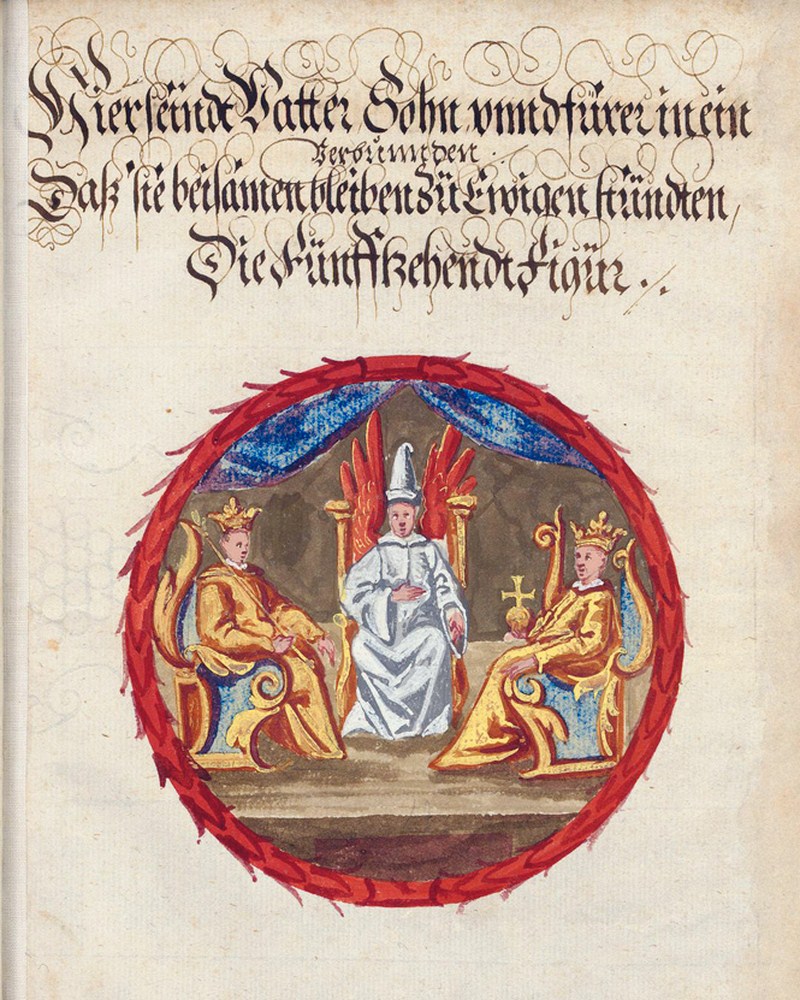 Hier seindt Vatter, Sohn, vnnd fürer in ein
Verbunnden.
Daß sie beisamen bleiben zü Ewigen stündten,
Die Fünfftzehendt Figür ./.